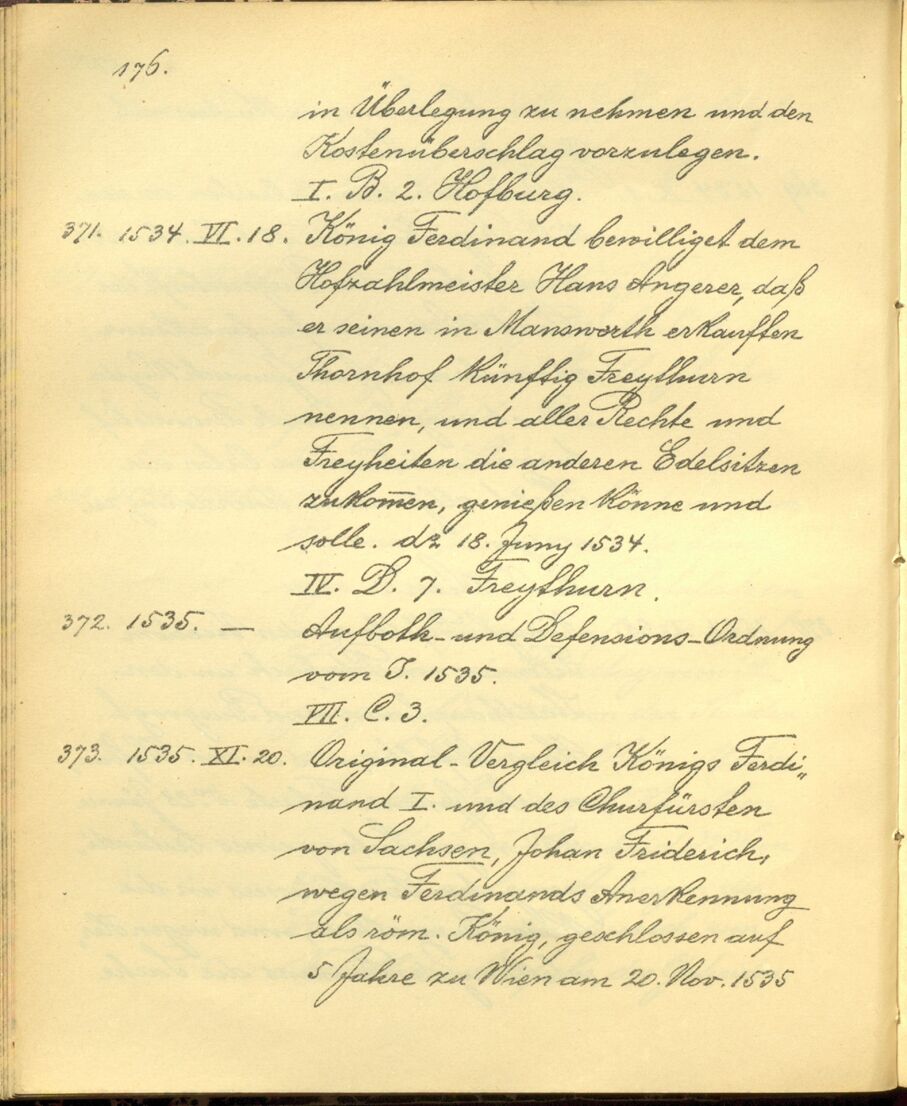 176.
in Überlegung zu nehmen und den
Kostenüberschlag vorzulegen.
I. B. 2. Hofburg.
371. 1534. VI. 18. König Ferdinand bewilliget dem
Hofzahlmeister Hans Angerer, daß
er seinen in Manswerth erkauften
Thornhof künftig Freythurn
nennen, und aller Rechte und
Freyheiten die anderen Edelsitzen
zukom̅en, genießen könne und
solle. d2 18. Juny 1534.
IV. D. 7. Freythurn.
372. 1535. — Aufboth- und Defensions-Ordnung
vom J. 1535.
VII. C. 3.
373. 1535. XI. 20. Original-Vergleich Königs Ferdi„
nand I. und des Churfürsten
von Sachsen, Johan Friderich,
wegen Ferdinands Anerkennung
als röm. König, geschlossen auf
5 Jahre zu Wien am 20. Nov. 1535